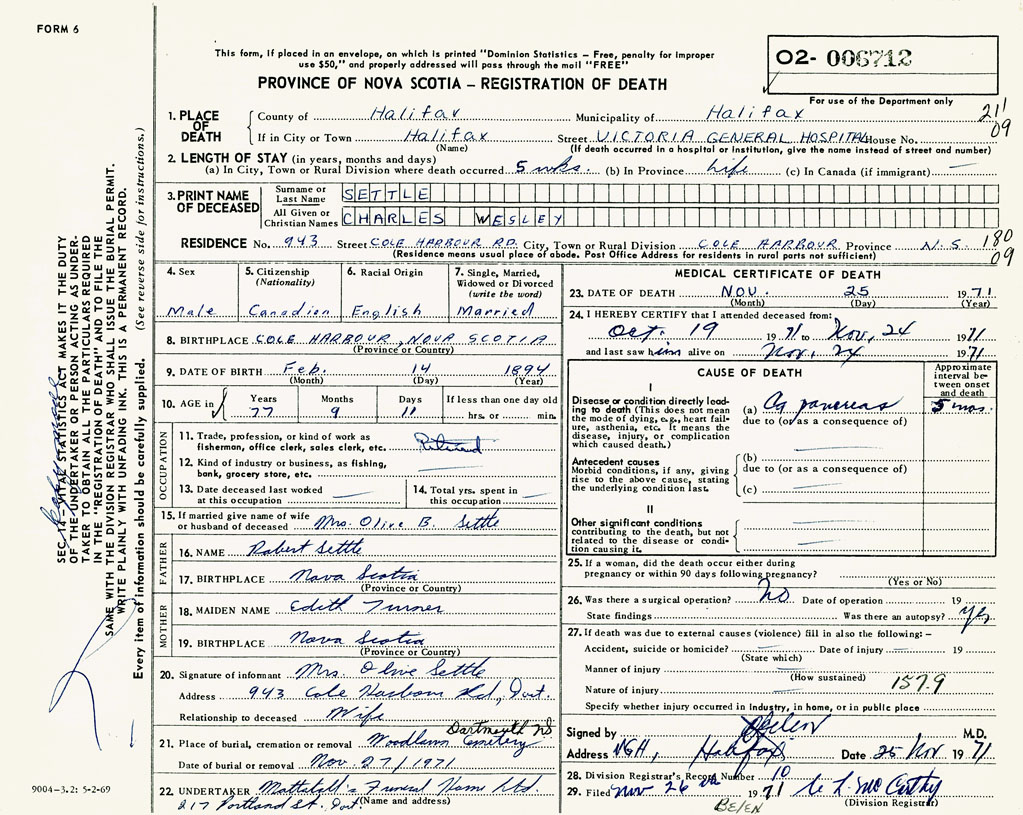 FORM 6
This form, if placed in an envelope, on which is printed "Dominion Statistics – Free, penalty for improper
use $50," and properly addressed will pass through the mail "FREE"
PROVINCE OF NOVA SCOTIA – REGISTRATION OF DEATH
02- 006712
For use of the Department only
211
09
1. PLACE OF DEATH
County of Halifax Municipality of Halifax
If in City or Town Halifax Street VICTORIA GENERAL HOSPITAL House No.
(Name) (If death occurred in a hospital or institution, give the name instead of street and number)
2. LENGTH OF STAY (in years, months and days)
(a) In City, Town or Rural Division where death occurred 5 wks. (b) In Province Life (c) In Canada (if immigrant) —
3. PRINT NAME OF DECEASED
Surname or Last Name SETTLE
All Given or Christian Names CHARLES WESLEY
RESIDENCE No. 943 Street COLE HARBOUR RD. City, Town or Rural Division COLE HARBOUR Province N.S.
180
09
(Residence means usual place of abode. Post Office Address for residents in rural parts not sufficient)
4. Sex Male
5. Citizenship (Nationality) Canadian
6. Racial Origin English
7. Single, Married, Widowed or Divorced (write the word) Married
8. BIRTHPLACE COLE HARBOUR, NOVA SCOTIA
(Province or Country)
9. DATE OF BIRTH Feb. 14 1894
(Month) (Day) (Year)
10. AGE in Years 77 Months 9 Days 11 If less than one day old hrs. or min.
OCCUPATION
11. Trade, profession, or kind of work as fisherman, office clerk, sales clerk, etc. Retired
12. Kind of industry or business, as fishing, bank, grocery store, etc.
13. Date deceased last worked at this occupation
14. Total yrs. spent in this occupation
15. If married give name of wife or husband of deceased Mrs. Olive B. Settle
FATHER
16. NAME Robert Settle
17. BIRTHPLACE Nova Scotia
(Province or Country)
MOTHER
18. MAIDEN NAME Edith Turner
19. BIRTHPLACE Nova Scotia
(Province or Country)
20. Signature of informant Mrs Olive Settle
Address 943 Cole Harbour Rd, Dart.
Relationship to deceased Wife
21. Place of burial, cremation or removal Woodlawn Cemetery Dartmouth NS
Date of burial or removal Nov. 27/1971
22. UNDERTAKER Mattatall's Funeral Home Ltd.
217 Portland St. Dart. (Name and address)
MEDICAL CERTIFICATE OF DEATH
23. DATE OF DEATH NOV. 25 1971
(Month) (Day) (Year)
24. I HEREBY CERTIFY that I attended deceased from:
Oct. 19 1971 to Nov, 24 1971
and last saw him alive on Nov. 24 1971
CAUSE OF DEATH
Approximate interval between onset and death
I
Disease or condition directly leading to death (This does not mean the mode of dying, e.g., heart failure, asthenia, etc. It means the disease, injury, or complication which caused death.)
(a) Ca pancreas 5 mos.
due to (or as a consequence of)
Antecedent causes
Morbid conditions, if any, giving rise to the above cause, stating the underlying condition last.
(b)
due to (or as a consequence of)
(c)
II
Other significant conditions contributing to the death, but not related to the disease or condition causing it.
25. If a woman, did the death occur either during pregnancy or within 90 days following pregnancy?
(Yes or No)
26. Was there a surgical operation? No Date of operation 19
State findings Was there an autopsy? Yes
27. If death was due to external causes (violence) fill in also the following: –
Accident, suicide or homicide? Date of injury 19
(State which)
Manner of injury
(How sustained)
Nature of injury 157.9
Specify whether injury occurred in Industry, in home, or in public place
Signed by M.D.
Address VGH, Halifax Date 25 Nov 1971
28. Division Registrar's Record Number 10
29. Filed Nov 26 1971
(Division Registrar)
BELEN
SEC. 14 – VITAL STATISTICS ACT MAKES IT THE DUTY
OF THE UNDERTAKER OR PERSON ACTING AS UNDER-
TAKER TO OBTAIN ALL THE PARTICULARS REQUIRED
IN THE "REGISTRATION OF DEATH" AND TO FILE THE
SAME WITH THE DIVISION REGISTRAR WHO SHALL ISSUE THE BURIAL PERMIT.
WRITE PLAINLY WITH UNFADING INK. THIS IS A PERMANENT RECORD.
Every item of information should be carefully supplied. (See reverse side for instructions.)
9004-3.2: 5-2-69